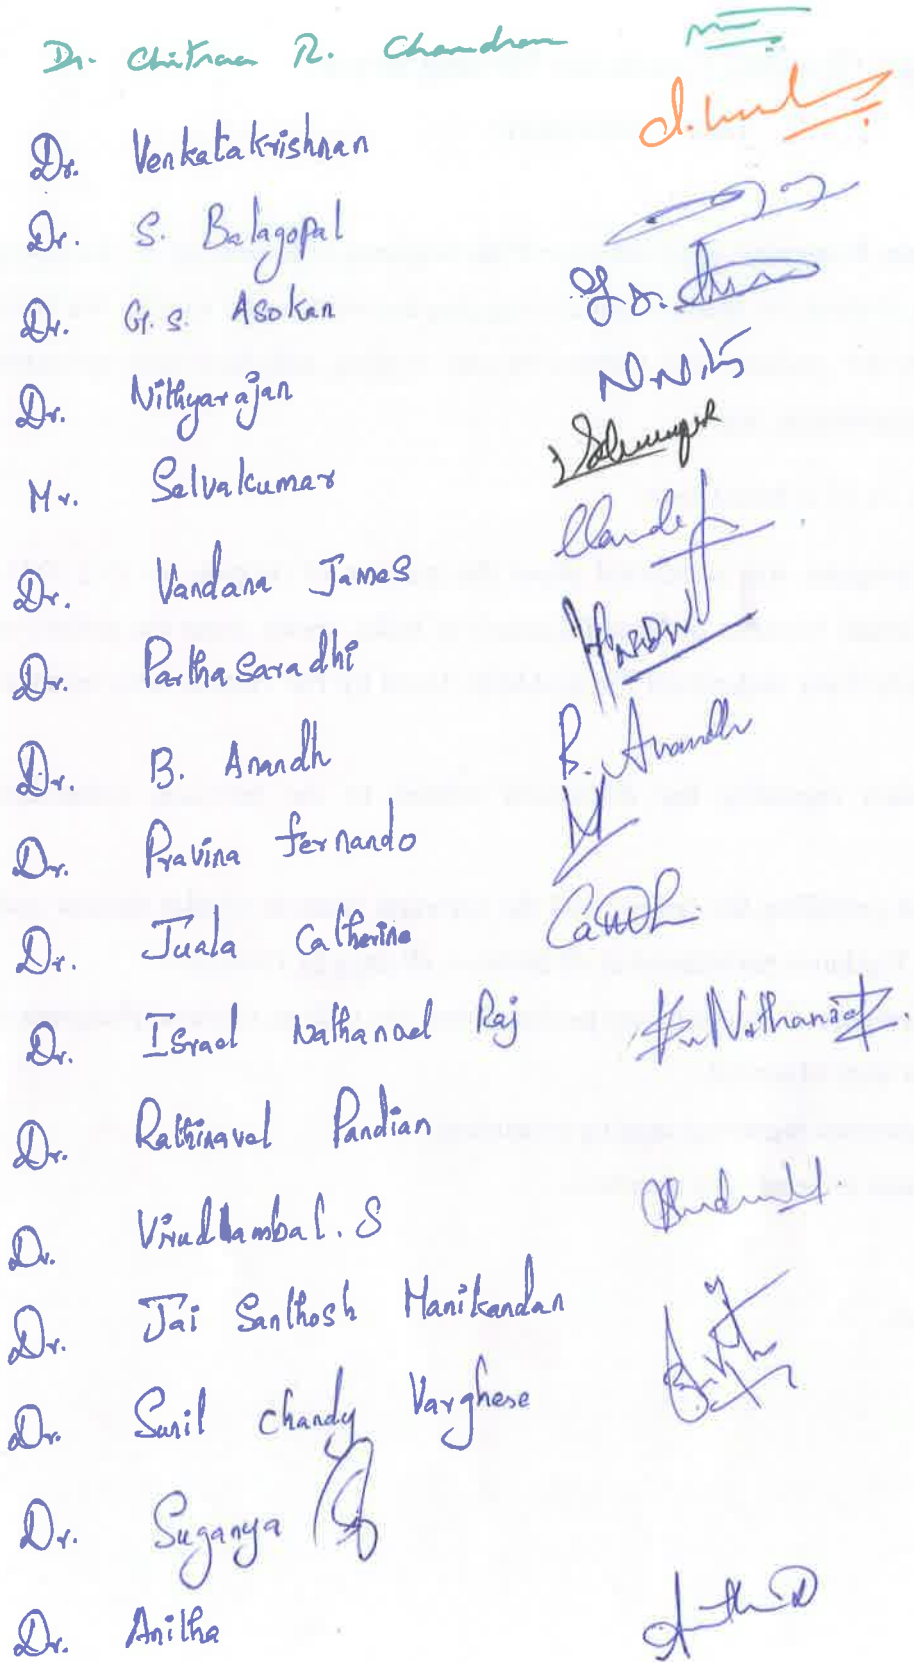 Dr. Chitraa R. Chandran
Dr. Venkatakrishnan
Dr. S. Balagopal
Dr. G. S. Asokan
Dr. Nithyarajan N.Nith
Mr. Selvakumar
Dr. Vandana James
Dr. Parthasaradhi
Dr. B. Anandh B. Anandh
Dr. Pravina Fernando
Dr. Juala Catherine Cath
Dr. Israel Nathanael Raj Nathanael
Dr. Rathinavel Pandian
Dr. Virudhambal. S
Dr. Jai Santhosh Manikandan
Dr. Sunil Chandy Varghese
Dr. Suganya
Dr. Anitha